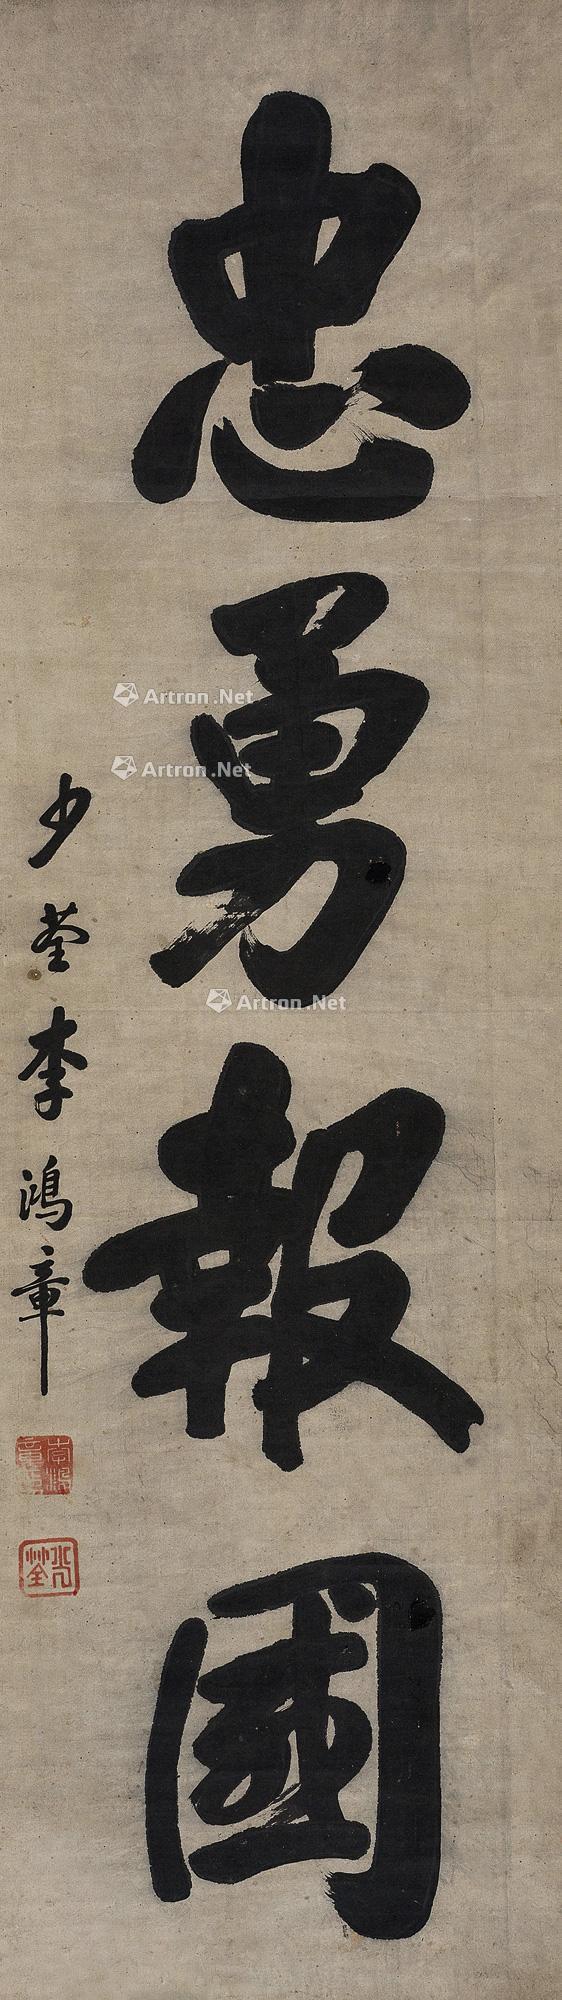 忠勇報國
少荃李鴻章
Artron.Net
Artron.Net
Artron.Net